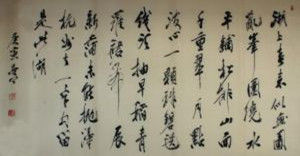 湖上春來似畫圖
亂峰圍繞水
平鋪松排山面
千重翠月點
波心一顆珠碧毯
線頭抽早稻青
羅裙帶展
新蒲未能拋得
杭州去一半勾留
是此湖
庚寅